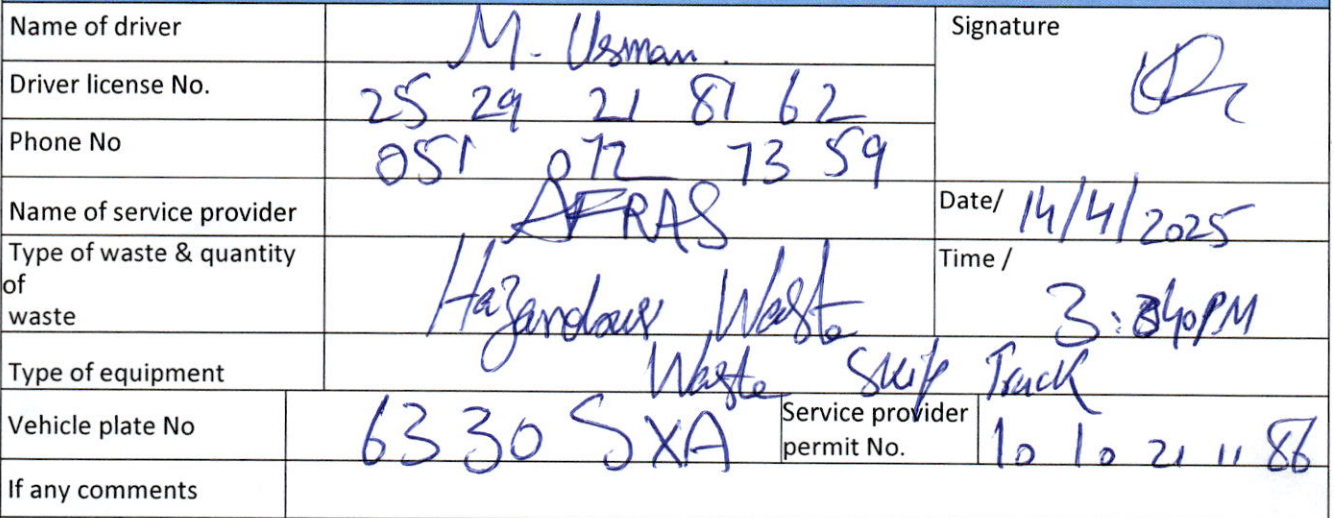 Name of driver M. Usman Signature
Driver license No. 25 29 21 81 62
Phone No 051 072 73 59
Name of service provider AFRAS Date/ 14/4/2025
Type of waste & quantity of waste Hazardous Waste Time / 3:40PM
Type of equipment Waste Skip Truck
Vehicle plate No 6330 SXA Service provider permit No. 10 10 21 11 86
If any comments